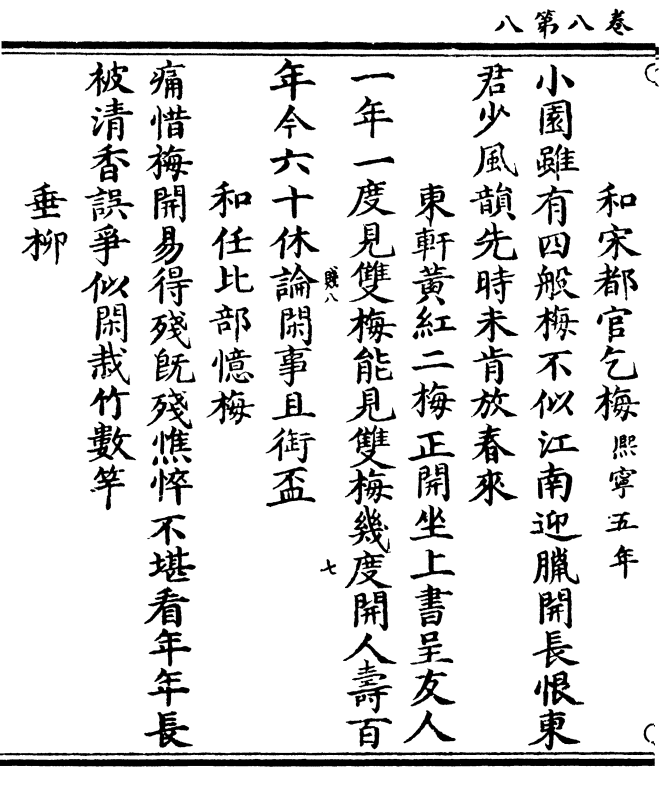 卷八第八
和宋都官乞梅熙寧五年
小園雖有四般梅不似江南迎臘開長恨東
君少風韻先時未肯放春來
東軒黃紅二梅正開坐上書呈友人
一年一度見雙梅能見雙梅幾度開人壽百
八
七
年今六十休論閑事且銜盃
和任比部憶梅
痛惜梅開易得殘既殘憔悴不堪看年年長
被清香誤爭似閑栽竹數竿
垂柳